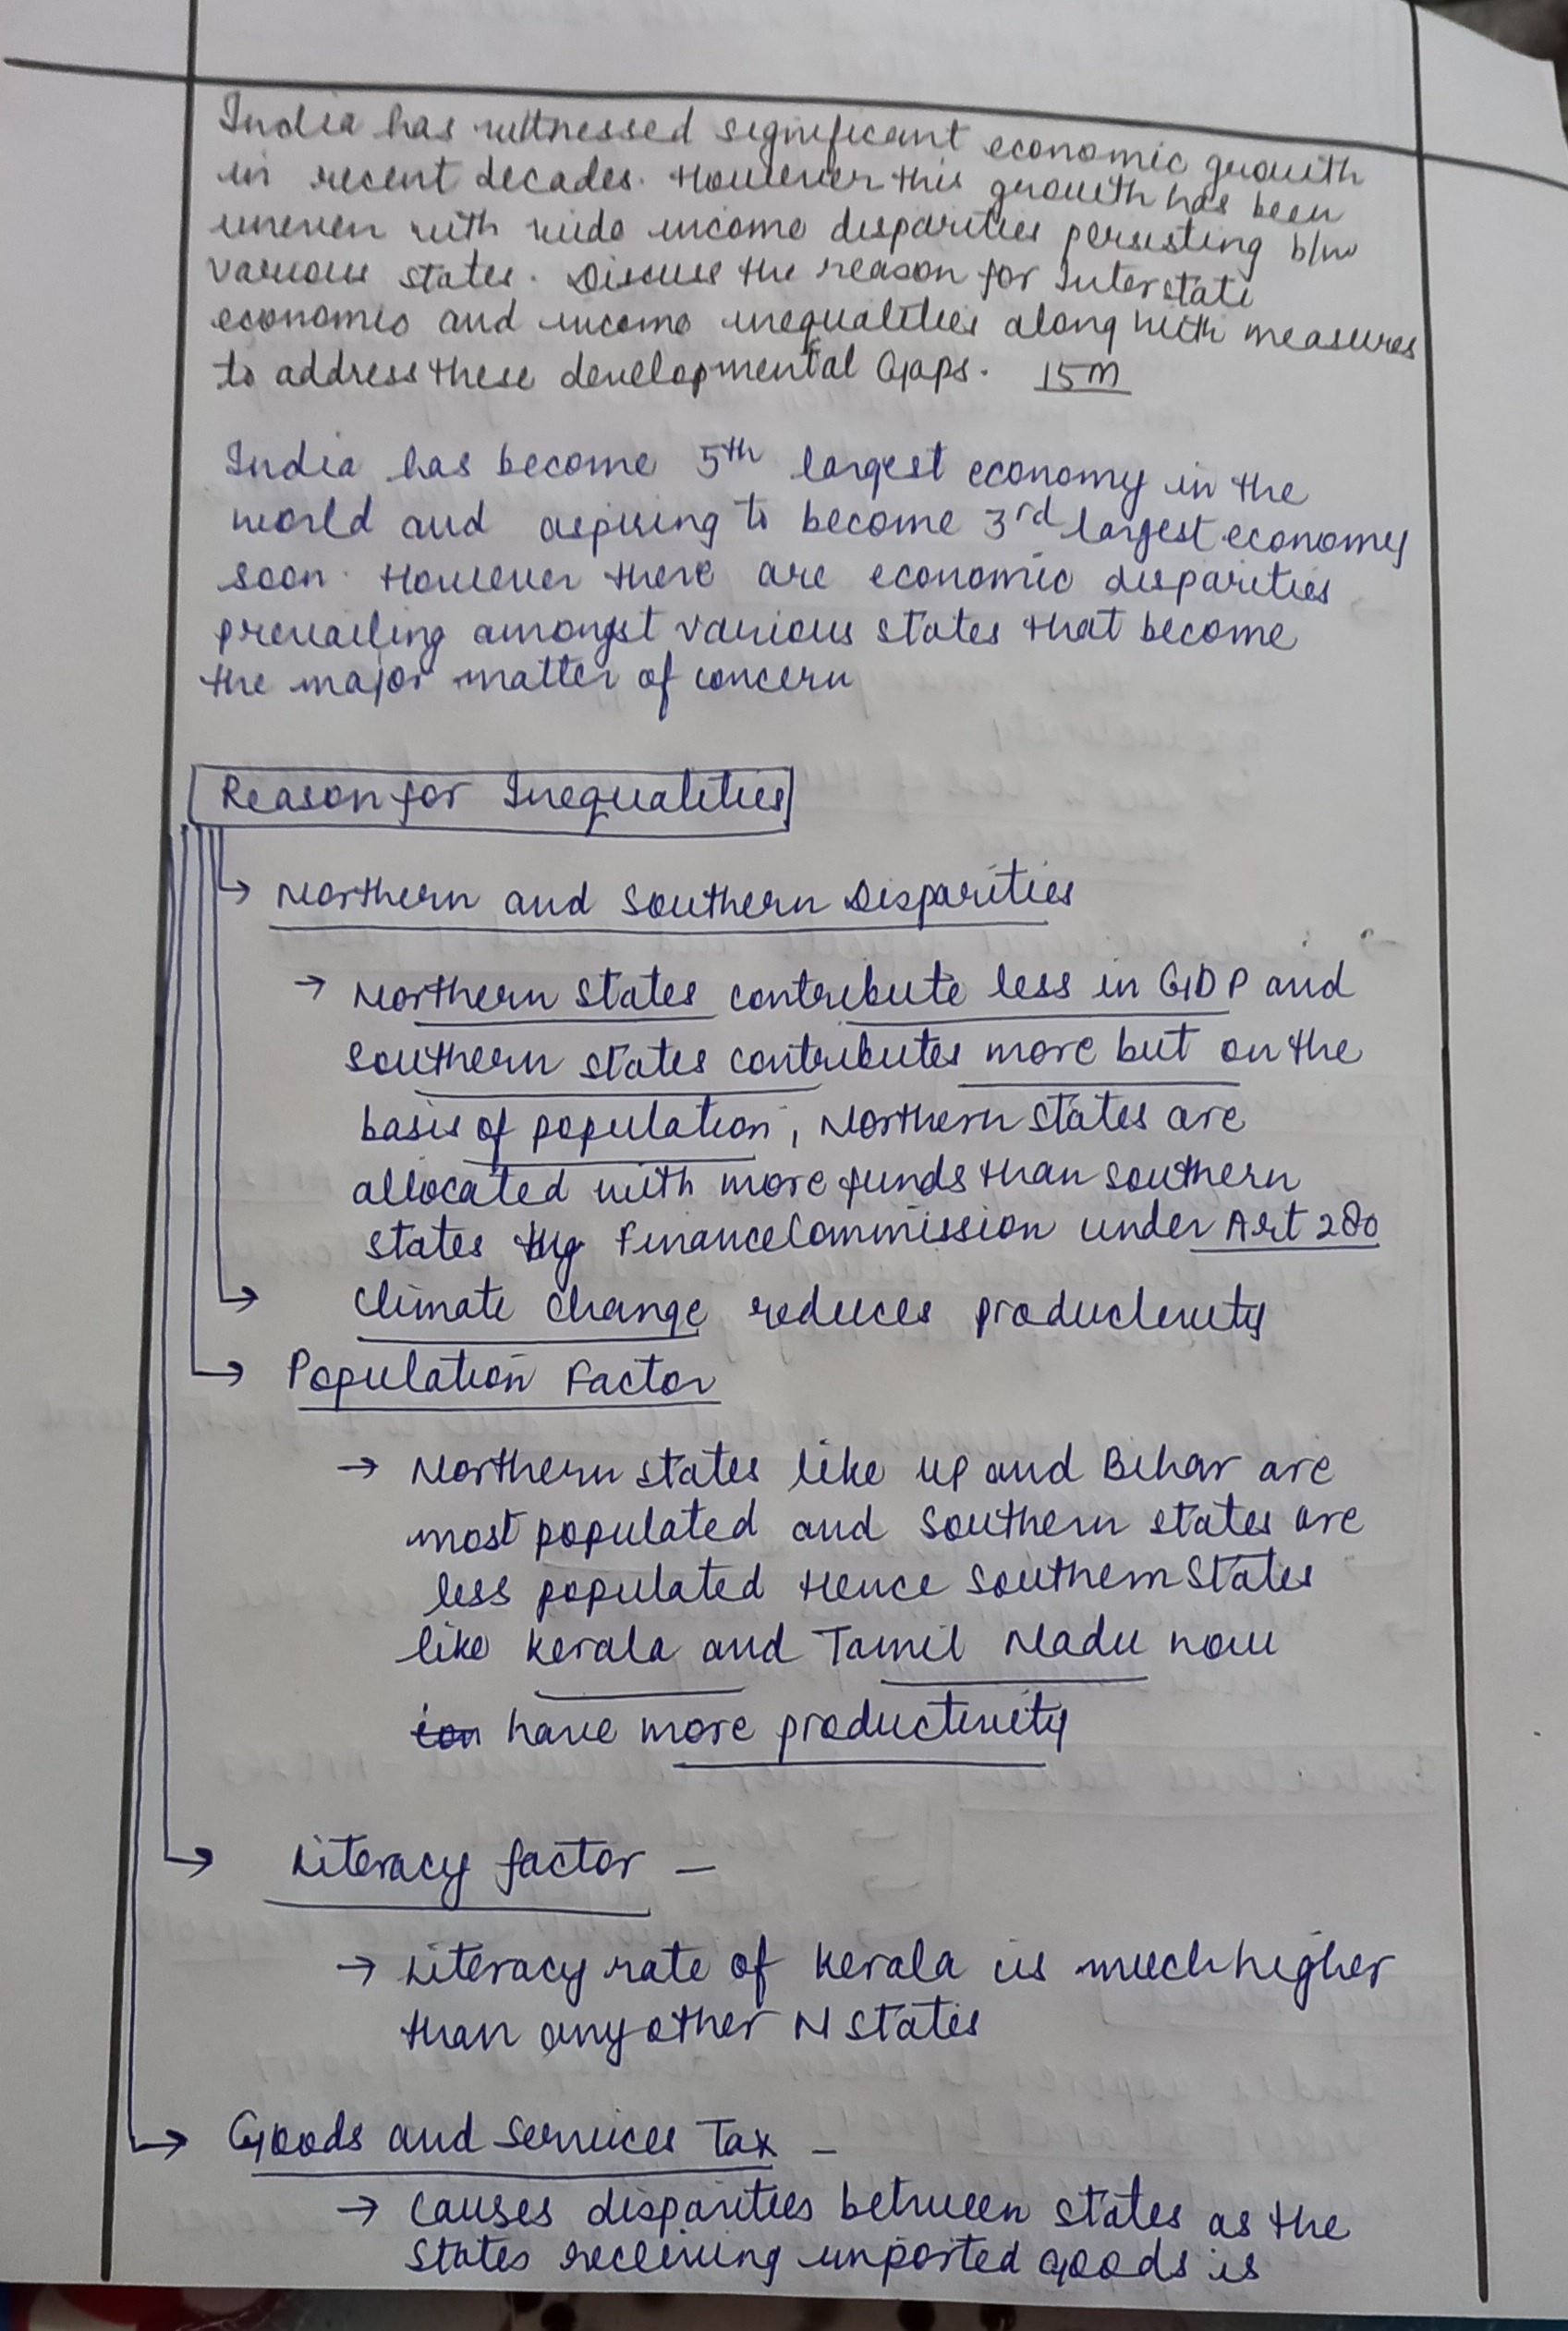 India has witnessed significant economic growth
in recent decades. However this growth has been
uneven with wide income disparities persisting b/w
various states. Discuss the reason for Interstate
economic and income inequalities along with measures
to address these developmental Gaps. 15m
India has become 5th largest economy in the
world and aspiring to become 3rd largest economy
soon. However there are economic disparities
prevailing amongst various states that become
the major matter of concern
Reason for Inequalities
→ Northern and Southern Disparities
→ Northern states contribute less in GDP and
Southern states contributes more but on the
basis of population, Northern states are
allocated with more funds than southern
states by Finance Commission under Art 280
→ Climate change reduces productivity
→ Population Factor
→ Northern states like UP and Bihar are
most populated and Southern states are
less populated Hence Southern States
like Kerala and Tamil Nadu now
have more productivity
→ Literacy factor –
→ Literacy rate of Kerala is much higher
than any other N states
→ Goods and Services Tax –
→ Causes disparities between states as the
states receiving imported goods is